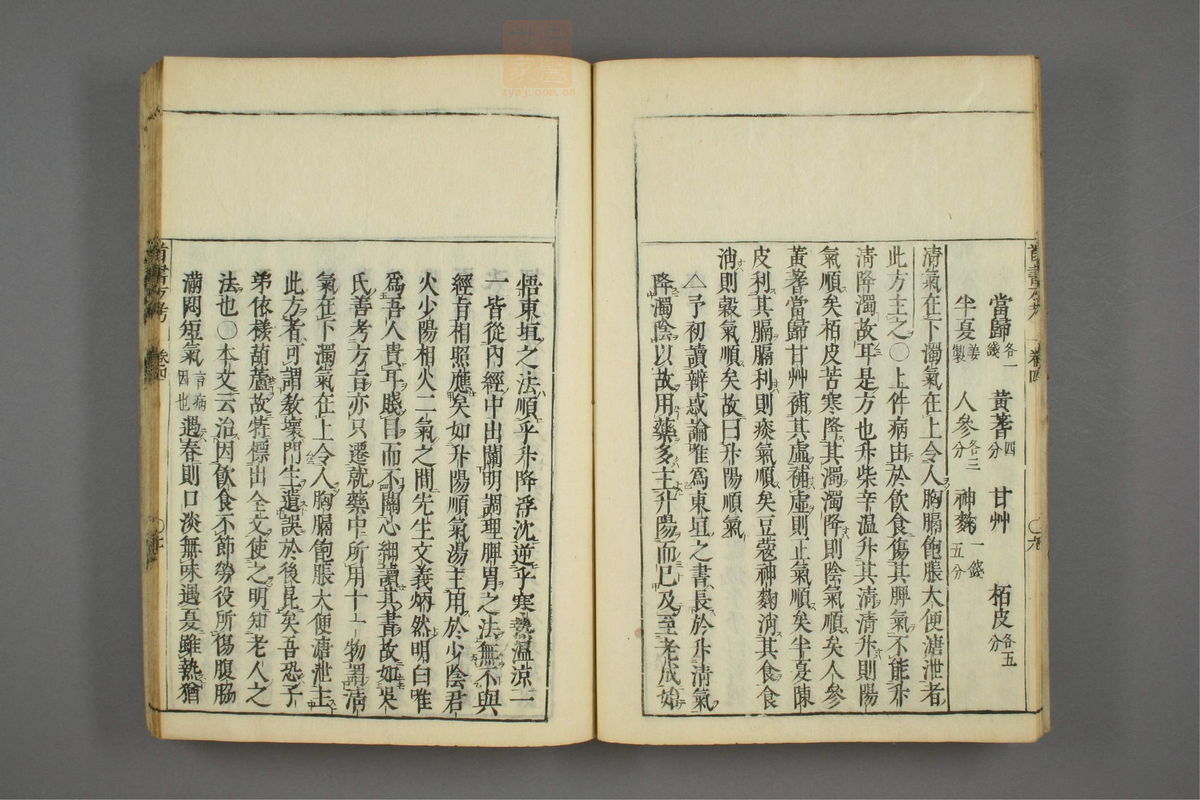 當歸各一錢 黃蓍四分 甘艸 栢皮各五分
半夏姜製 人參各三分 神麴一錢五分
淸氣在下濁氣在上令人胸膈飽脹大便溏泄者
此方主之〇上件病由於飮食傷其脾氣不能升
淸降濁故耳是方也升柴辛溫升其淸淸升則陽
氣順矣栢皮苦寒降其濁濁降則陰氣順矣人參
黃蓍當歸甘艸補其虛補虛則正氣順矣半夏陳
皮利其膈膈利則痰氣順矣豆蔻神麴消其食食
消則穀氣順矣故曰升陽順氣
△予初讀辨惑論唯爲東垣之書長於升淸氣
降濁陰以故用藥多主升陽而已及至老成始
悟東垣之法順乎升降浮沈逆乎寒熱溫涼一
一皆從內經中出闡明調理脾胃之法無不與
經旨相照應矣如升陽順氣湯主用於少陰君
火少陽相火二氣之間先生文義炳然明白唯
爲吾人貴耳賤目而不關心細讀其書故如吳
氏善考方旨亦只遷就藥中所用十一物畧淸
氣在下濁氣在上令人胸膈飽脹大便溏泄主
此方者可謂敎壞門生遺誤於後昆矣吾恐子
弟依樣葫蘆故特標出全文使之明知老人之
法也〇本文云治因飮食不節勞役所傷腹脇
滿悶短氣言病因也遇春則口淡無味遇夏雖熱猶
卷四
卷四
zysj.com.cn